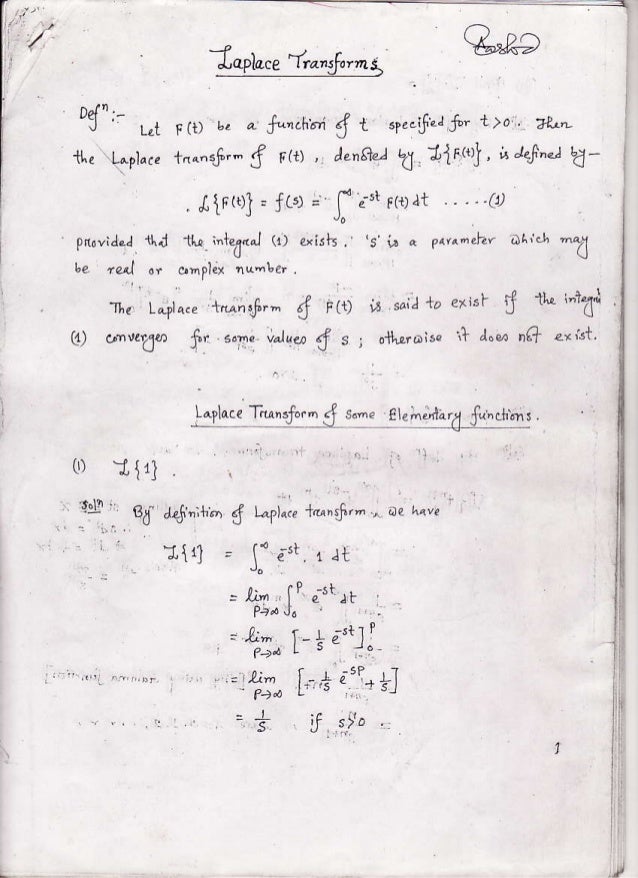 Laplace Transforms
Defⁿ :-
Let F(t) be a function of t specified for t>0. Then
the Laplace transform of F(t), denoted by ℒ{F(t)}, is defined by—
ℒ{F(t)} = f(s) = ∫₀^∞ e^{-st} F(t) dt .....(1)
provided that the integral (1) exists. 's' is a parameter which may
be real or complex number.
The Laplace transform of F(t) is said to exist if the
(1) converges for some values of s ; otherwise it does not exist.
Laplace Transform of Some Elementary functions.
(1) ℒ{1} .
Solⁿ By definition of Laplace transform, we have
ℒ{1} = ∫₀^∞ e^{-st} . 1 dt
= lim_{P→∞} ∫₀^P e^{-st} dt
= lim_{P→∞} [-1/s e^{-st}]₀^P
= lim_{P→∞} [-1/s e^{-sP} + 1/s]
= 1/s if s>0
1